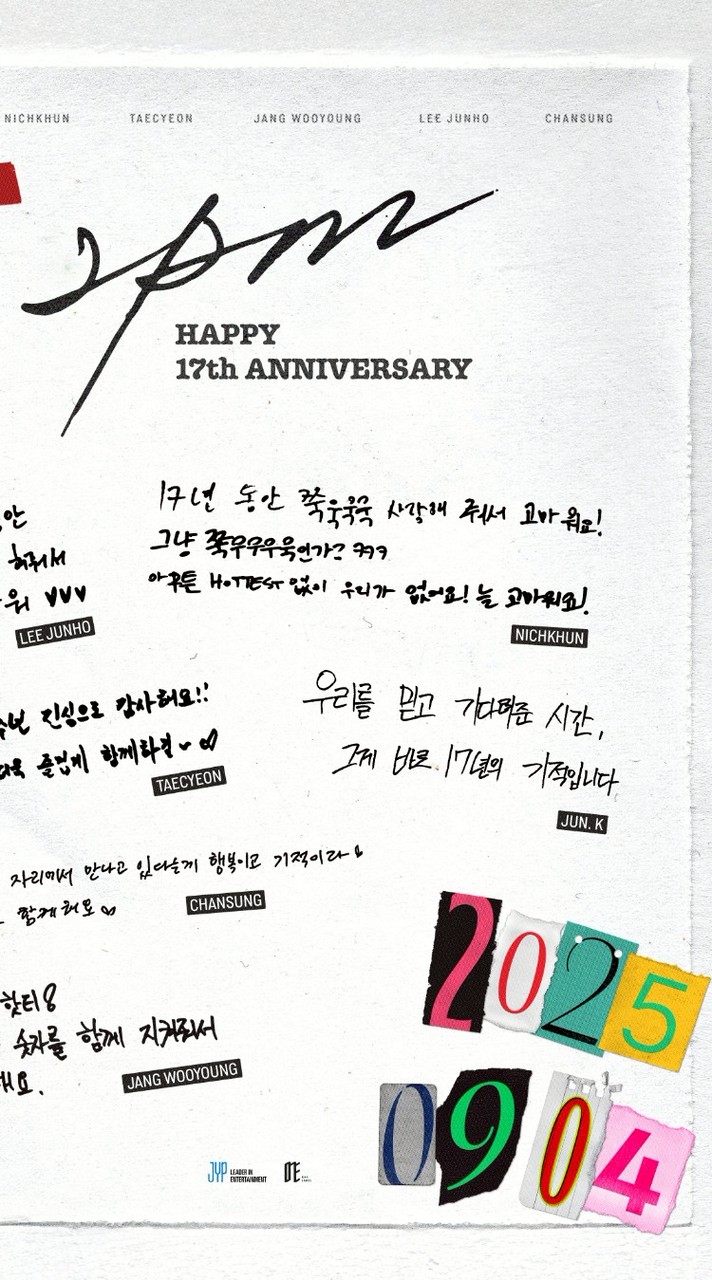 NICHKHUN TAECYEON JANG WOOYOUNG LEE JUNHO CHANSUNG
2pm
HAPPY
17th ANNIVERSARY
17년 동안 쭉욱욱욱 사랑해 줘서 고마워요!
그냥 쭉우우우욱인가? ㅋㅋㅋ
아무튼 HOTTEST 없이 우리가 없어요! 늘 고마워요!
NICHKHUN
안
해줘서
워 ♥♥♥
LEE JUNHO
주년 진심으로 감사해요!!
더욱 즐겁게 함께하길~♡
TAECYEON
우리를 믿고 기다려준 시간,
그게 바로 17년의 기적입니다
JUN. K
자리에서 만나고 있다는게 행복이고 기적이다
함께해요♡
CHANSUNG
핫티
숫자를 함께 지켜줘서
해요.
JANG WOOYOUNG
2025
0904
JYP LEADER IN
ENTERTAINMENT